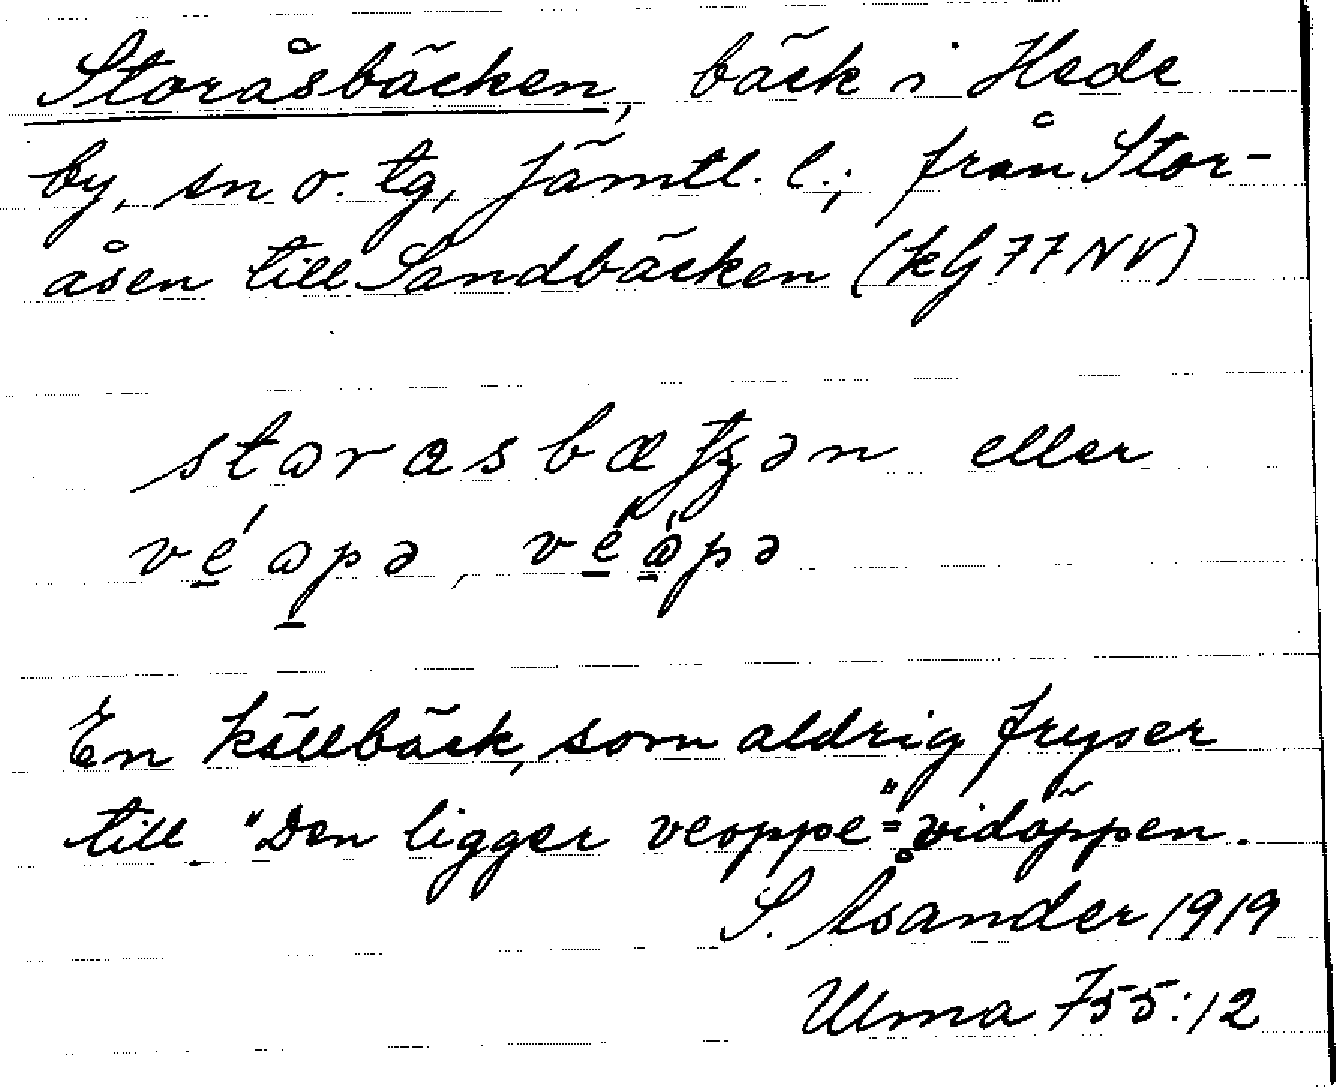 Storåsbäcken, bäck i Hede
by, sn o. tg, Jämtl. l.; från Stor-
åsen till Sandbäcken (kbl 77 NV)
eller
En källbäck, som aldrig fryser
till. "Den ligger veoppe" = vidöppen.
S. Åsander 1919
Ulma 755:12